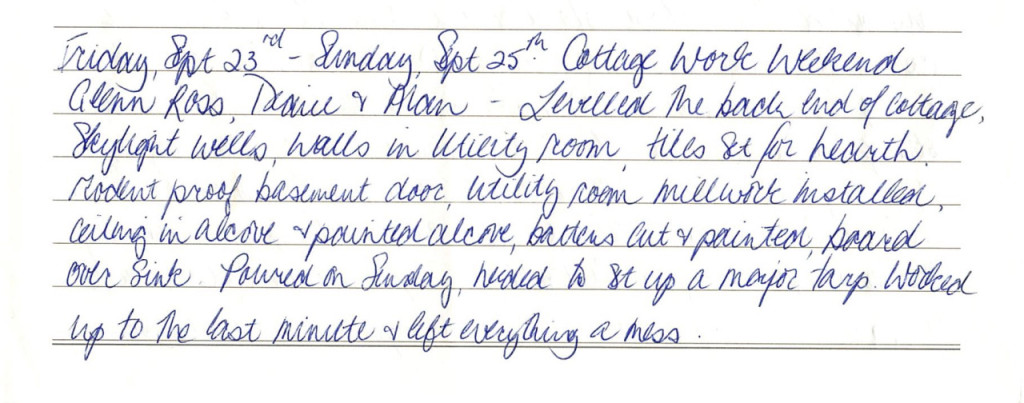 Friday, Sept 23rd - Sunday, Sept 25th. Cottage Work Weekend
Glenn Ross, Diane & Alan - Levelled the back end of cottage,
Skylight wells, walls in Utility room, tiles set for hearth.
Rodent proof basement door, utility room millwork installed,
ceiling in alcove & painted alcove, battens cut & painted, board
over sink. Poured on Sunday, needed to set up a major tarp. Worked
up to the last minute & left everything a mess.